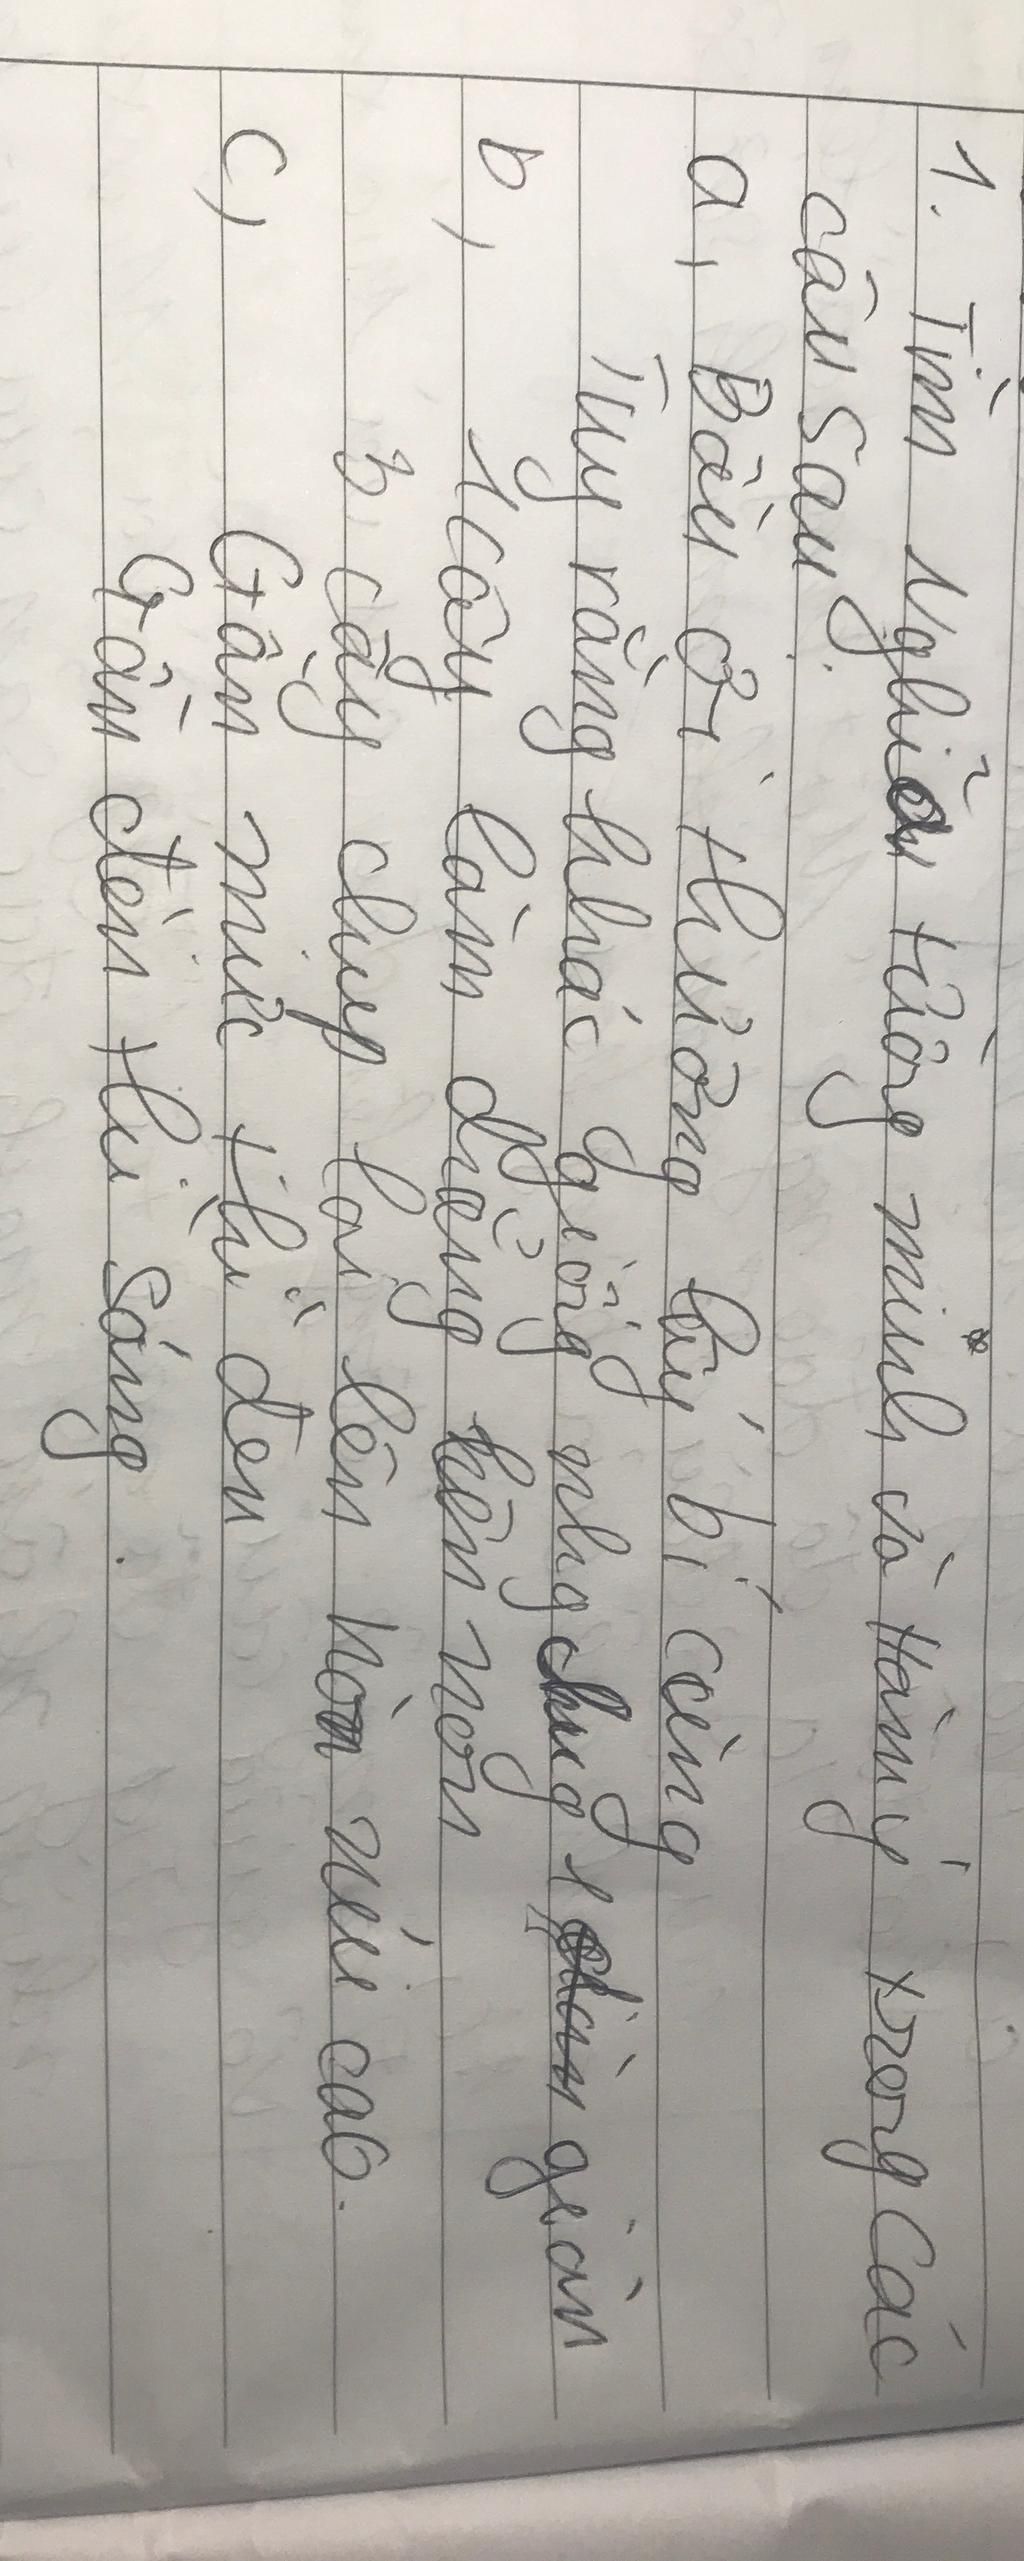 1. Tìm Nghĩa tường minh và Hàm ý trong Các
câu sau.
a, Bầu ơi thương lấy bí cùng
Tuy rằng khác giống nhg chug 1 giàn
b, 1 cây làm chẳng lên non
3 cây chụp lại lên hòn núi cao.
c, Gần mực thì đen
Gần đèn thì sáng.